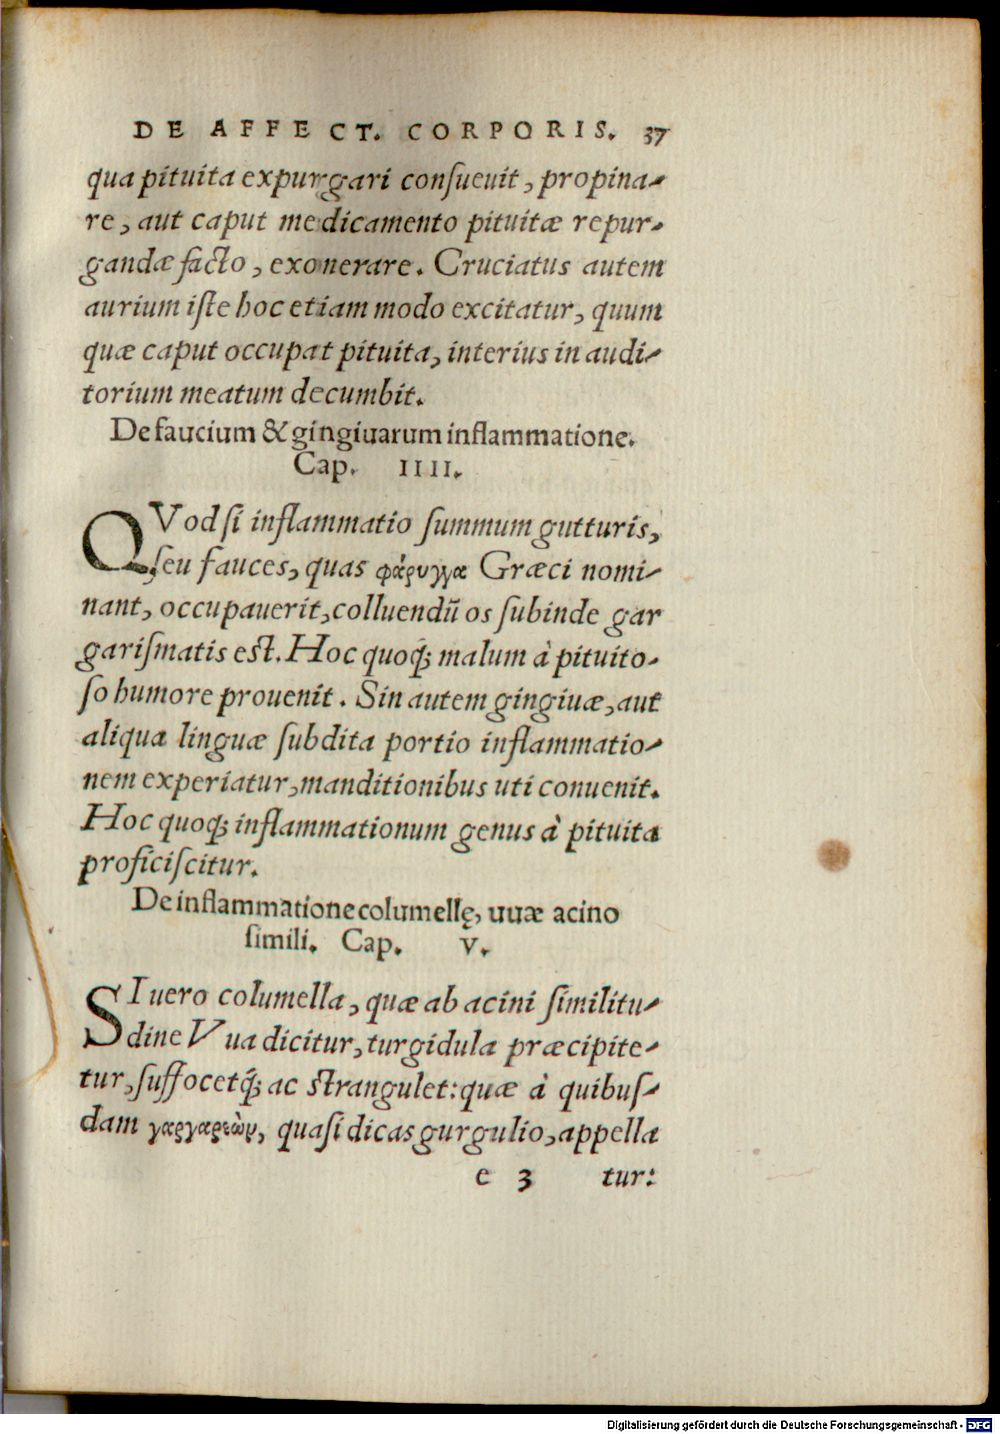 DE AFFECT. CORPORIS. 37
qua pituita expurgari conſueuit, propina-
re, aut caput medicamento pituitæ repur-
gandæ facto, exonerare. Cruciatus autem
aurium iſte hoc etiam modo excitatur, quum
quæ caput occupat pituita, interius in audi-
torium meatum decumbit.
De faucium & gingiuarum inflammatione.
Cap. IIII.
QVod ſi inflammatio ſummum gutturis,
ſeu fauces, quas φάρυγγα Græci nomi-
nant, occupauerit, colluendũ os ſubinde gar
gariſmatis eſt. Hoc quoq; malum à pituito-
ſo humore prouenit. Sin autem gingiuæ, aut
aliqua linguæ ſubdita portio inflammatio-
nem experiatur, manditionibus uti conuenit.
Hoc quoq; inflammationum genus à pituita
proficiſcitur.
De inflammatione columellę, uuæ acino
ſimili. Cap. V.
SI uero columella, quæ ab acini ſimilitu-
dine Vua dicitur, turgidula præcipite-
tur, ſuffocetq́; ac ſtrangulet: quæ à quibuſ-
dam γαργαρεὼν, quaſi dicas gurgulio, appella
e 3 tur:
Digitalisierung gefördert durch die Deutsche Forschungsgemeinschaft - DFG